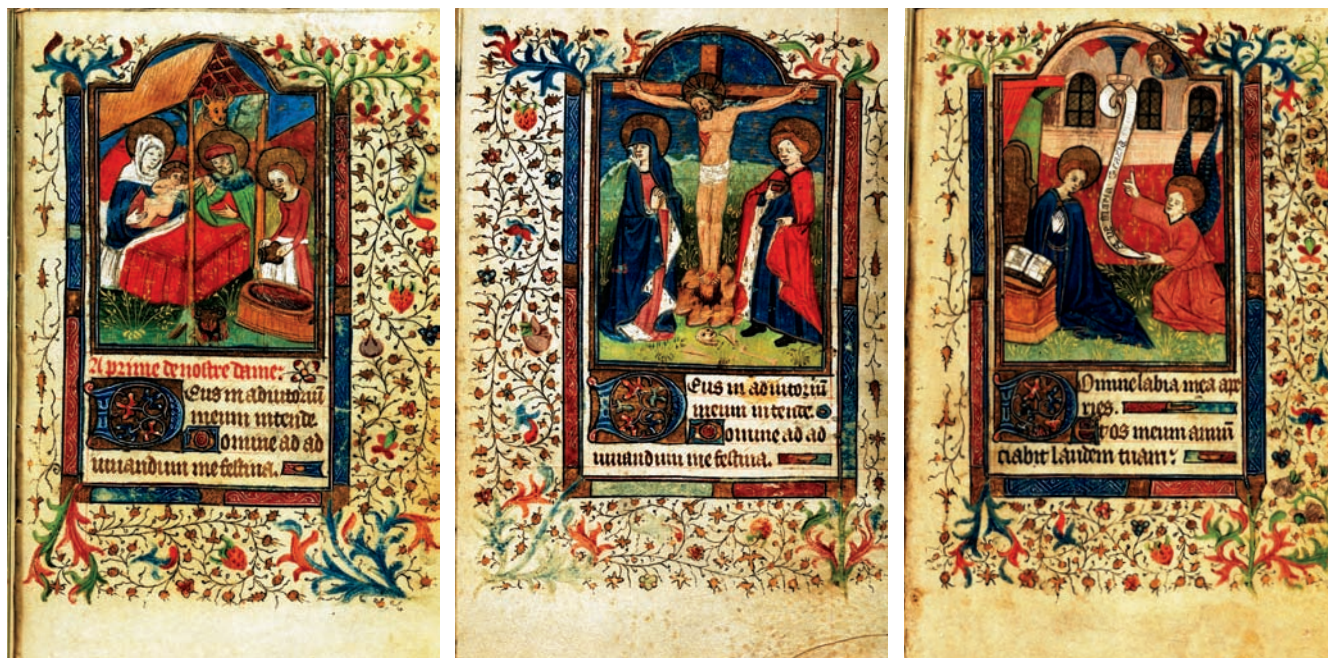 A prime de nostre dame:
Deus in adiutoriū
meum intende.
Domine ad ad
iuuandum me festina.
Deus in adiutoriū
meum intende.
Domine ad ad
iuuandum me festina.
aue maria gracia
Domine labia mea ape
ries.
Et os meum annū
ciabit laudem tuam: